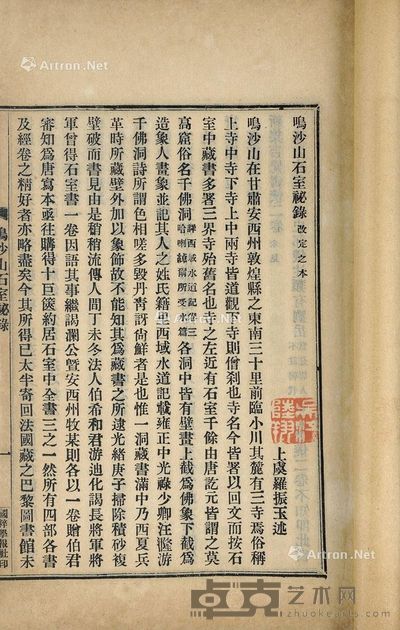 鳴沙山石室祕錄 改定之本
上虞羅振玉述
鳴沙山在甘肅安西州敦煌縣之東南三十里前臨小川其麓有三寺焉俗稱
上寺中寺下寺上中兩寺皆道觀下寺則僧刹也寺名今皆署以回文而按石
室中藏書多署三界寺殆舊名也寺之左近有石室千餘由唐訖元皆謂之莫
高窟俗名千佛洞 各洞中皆有壁畫上截爲佛象下截爲
造象人畫象並記其人之姓氏籍里西域水道記載雍正中光祿少卿汪漋游
千佛洞詩所謂色相嗟多毀丹青訝尙鮮者是也惟一洞藏書滿中乃西夏兵
革時所藏壁外加以象飾故不能知其爲藏書之所逮光緒庚子掃除積砂複
壁破而書見由是稍稍流傳人間丁未冬法人伯希和君游迪化謁長將軍將
軍曾得石室書一卷因語其事繼謁瀾公暨安西州牧某則各以一卷贈伯君
審知爲唐寫本亟往購得十巨篋約居石室中全書三之一然所有四部各書
及經卷之精好者亦略盡矣今其所得已太半寄回法國藏之巴黎圖書館未
鳴沙山石室祕錄
國粹學報社印
Artron.Net
Artron.Net
Artron.Net
Artron.Net
卓克艺术网
zhuokearts.com